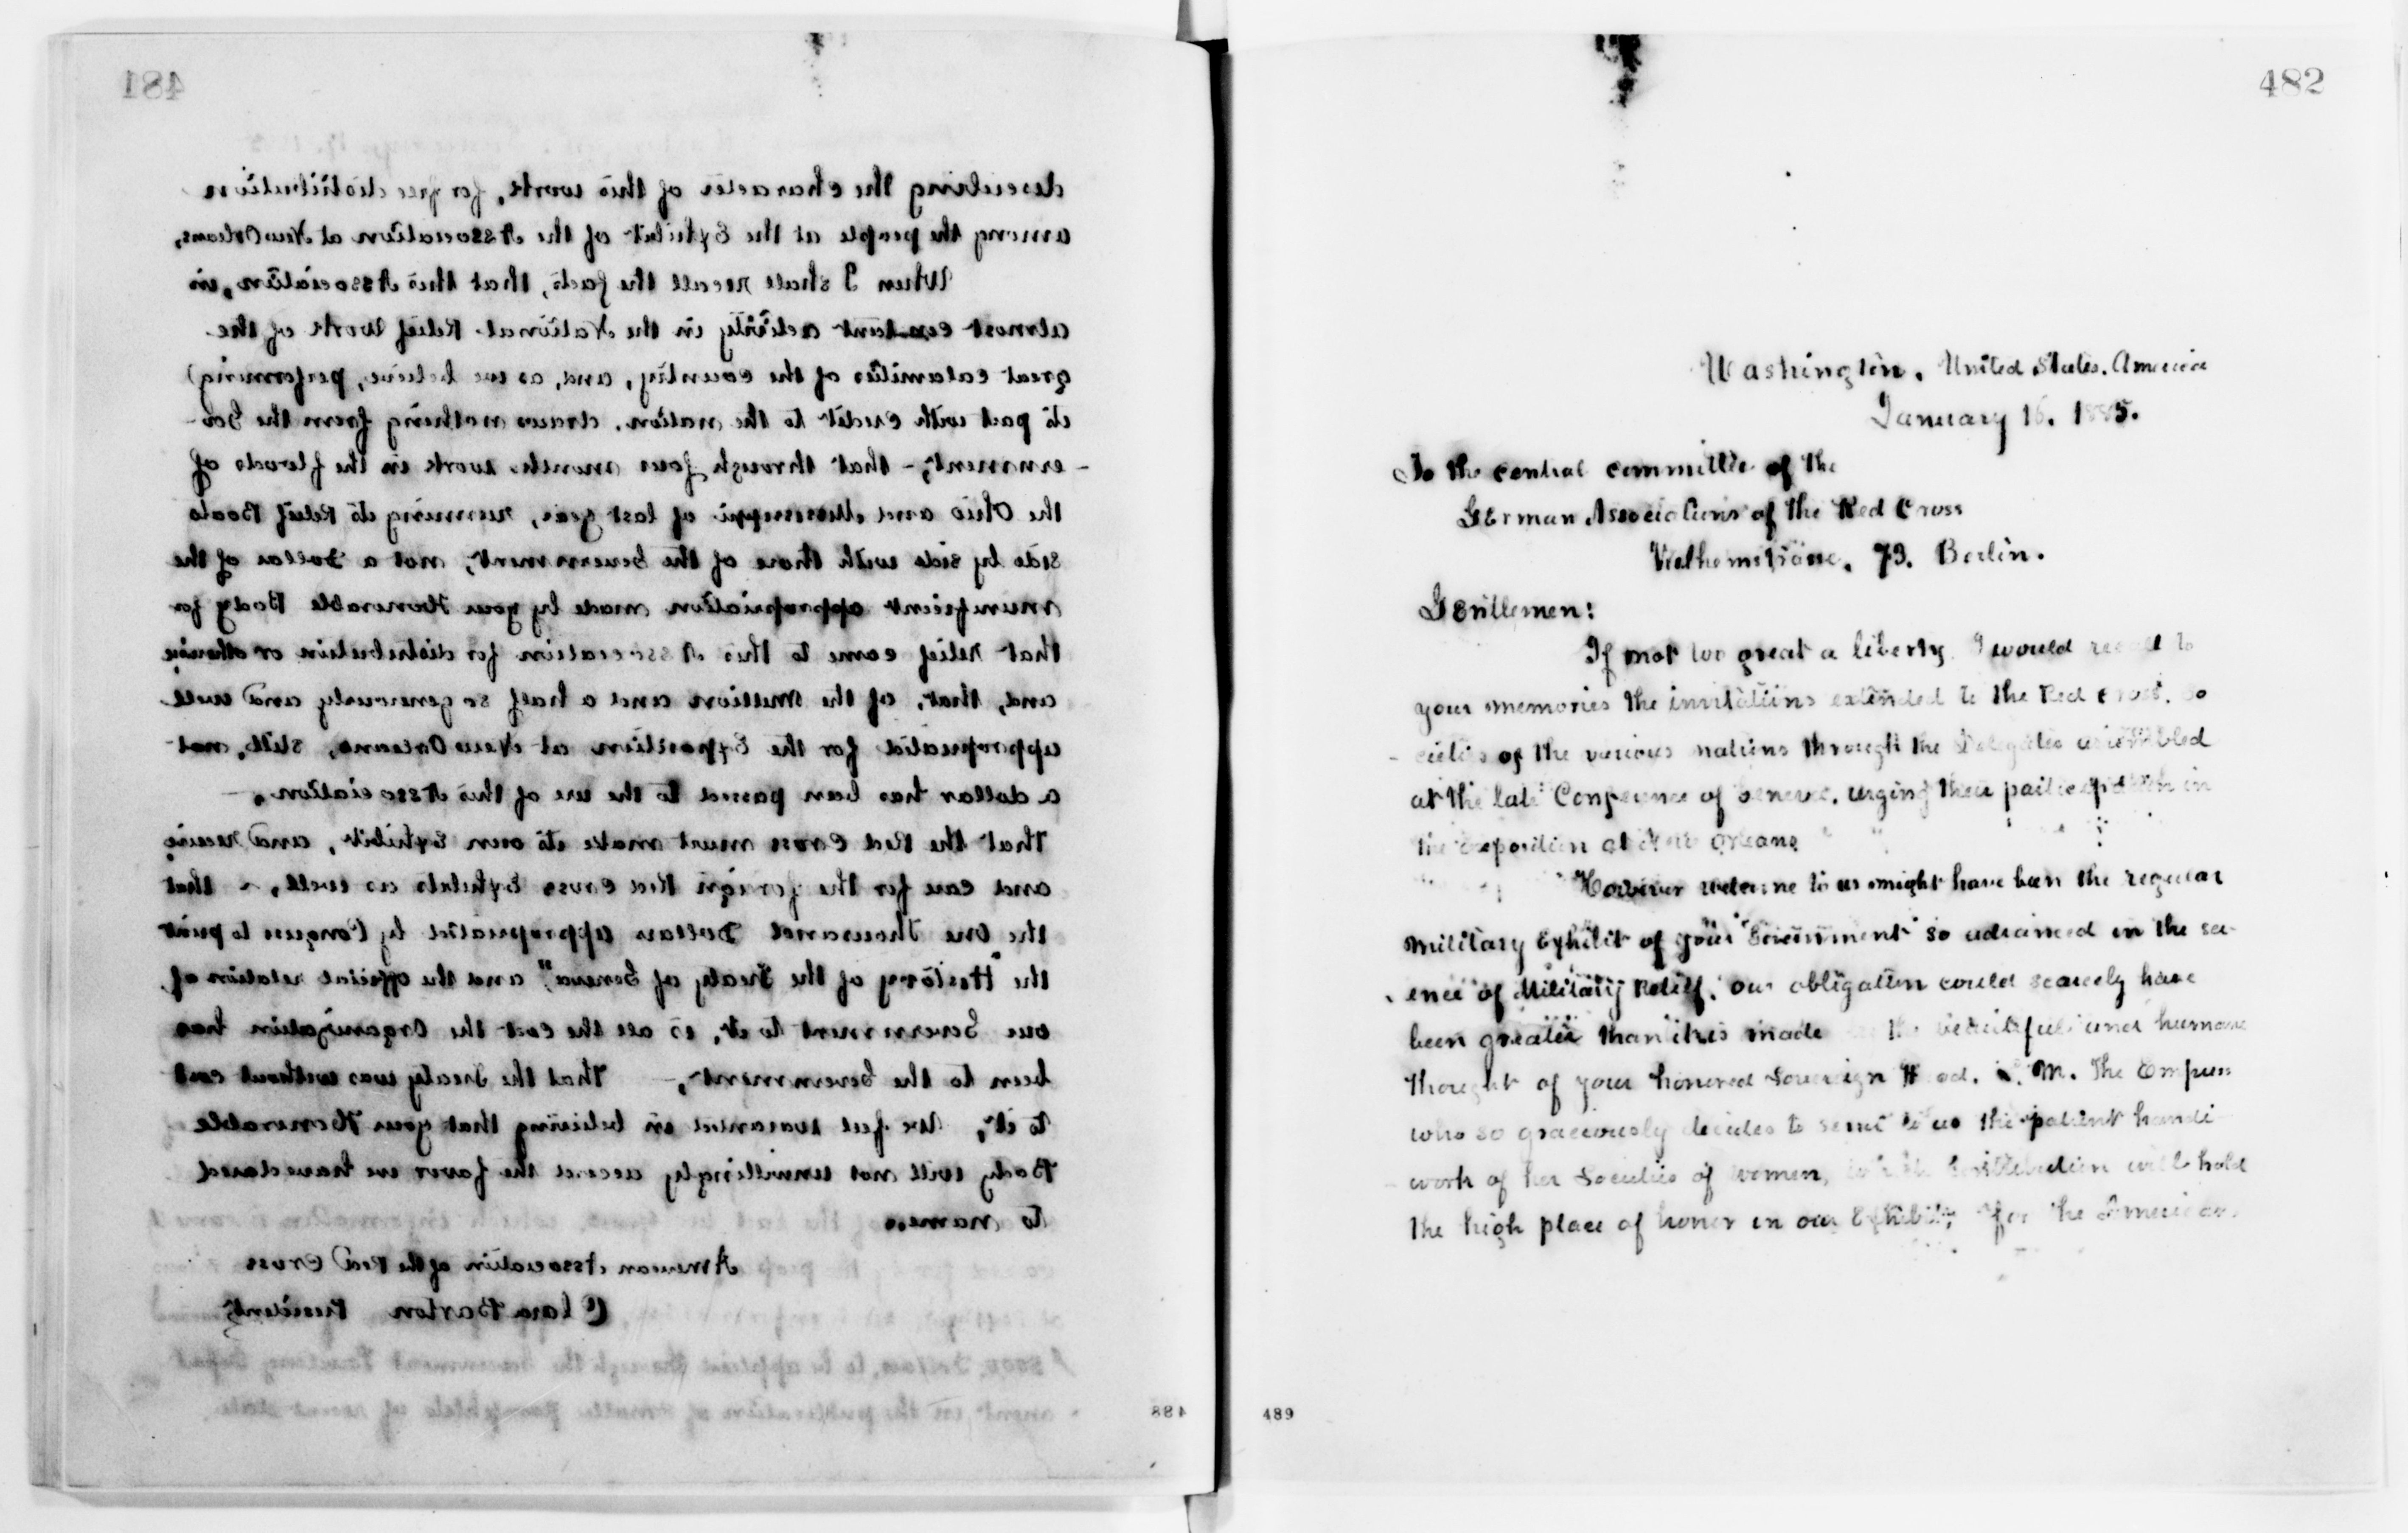 481
describing the character of this work, for free distribution
among the people at the Exhibit of the Association at New Orleans,
When I shall recall the facts, that this Association, in
almost constant activity in the National Relief Work of the
great calamities of the country, and, as we believe, performing
its part with credit to the nation, draws nothing from the Gov-
-ernment; - that through four months work in the floods of
the Ohio and Mississippi of last year, running its Relief Boats
side by side with those of the Government, not a Dollar of the
munificent appropriation made by your Honorable Body for
that relief came to this Association for distribution or otherwise
and, that, of the million and a half so generously and well
appropriated for the Exposition at New Orleans, still, not
a dollar has been passed to the use of this Association, -
That the Red Cross must make its own Exhibit, and receive
and care for the foreign Red Cross Exhibits as well, - that
the One Thousand Dollars appropriated by Congress to print
the "History of the Treaty of Geneva", and the official relation of
our Government to it, is all the cost the Organization has
been to the Government, - That the Treaty was without cost
to it, We feel warranted in believing that your Honorable
Body will not unwillingly accord the favor we have dared
to name.
American Association of the Red Cross
Clara Barton President
$5000, Dollars, to be applied through the Government Printing Depart
- ment, in the publication of smaller pamphlets of recent date
488
482
Washington, United States, America
January 16. 1885.
To the central committee of the
German Associations of the Red Cross
73. Berlin.
Gentlemen:
If not too great a liberty I would recall to
your memories the invitations extended to the Red Cross, So
- cieties of the various nations through the Delegates assembled
at the late Conference of Geneva, urging their participation in
the exposition at New Orleans
However welcome to us might have been the regular
military Exhibit of your Government so advanced in the sci-
ence of Military Relief, our obligation could scarcely have
been greater than it is made the beautiful and humane
thought of your honored Sovereign Head, M. The Empress
who so graciously decides to send to us the patient handi
work of her Societies of women, contribution will hold
the high place of honor in our Exhibit; for the American
489